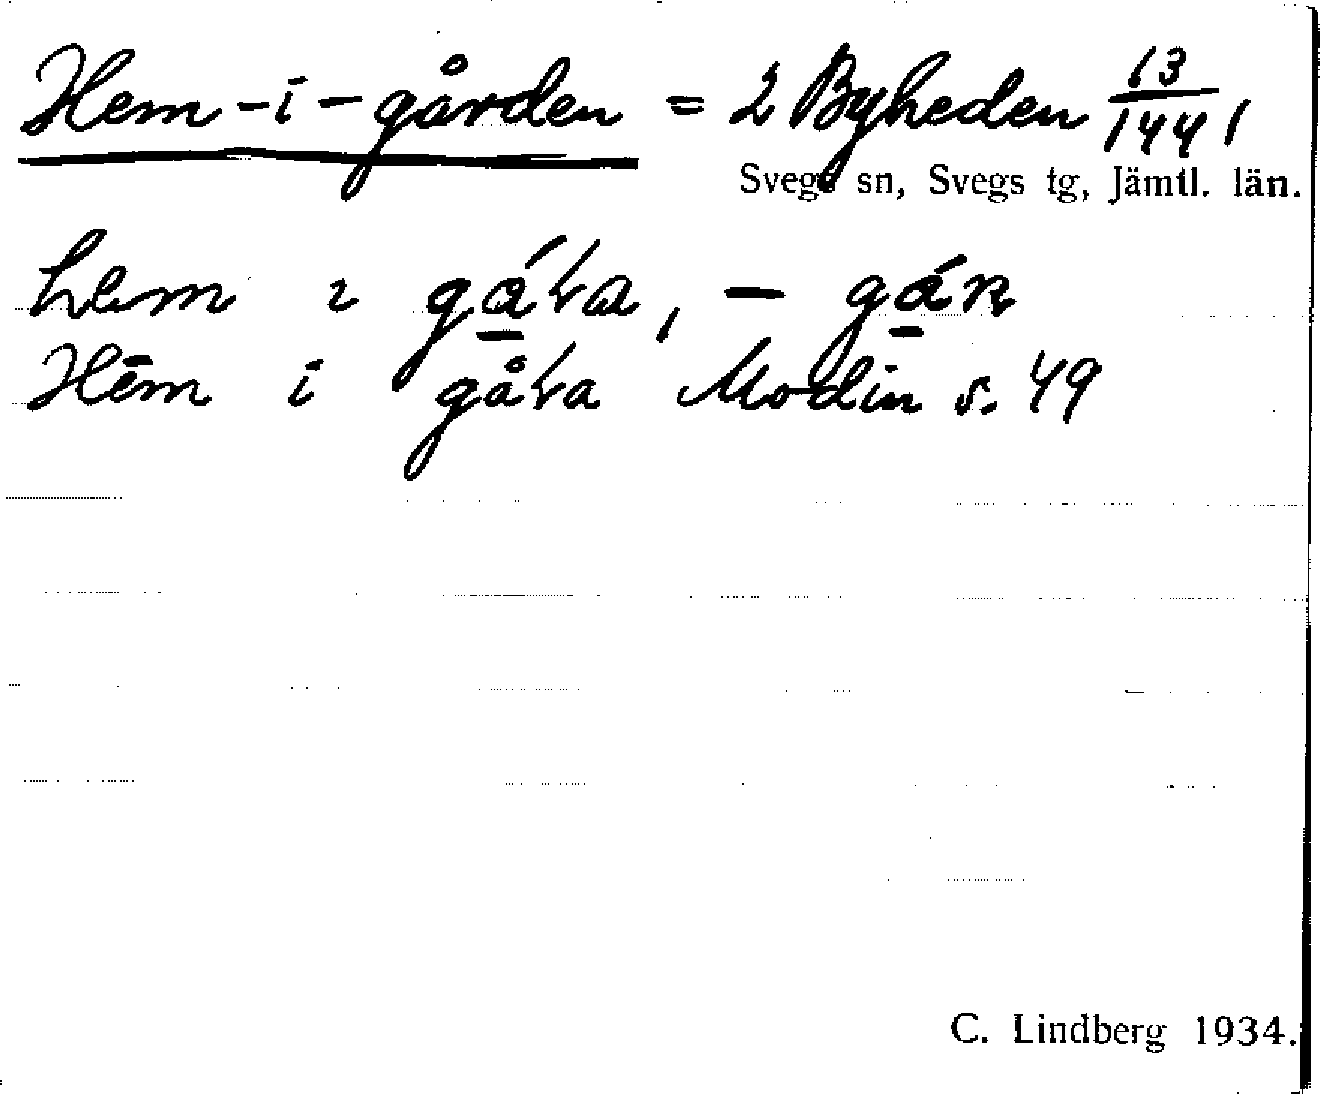 Hem-i-gården = 2 Byheden 13/144 1
Svegs sn, Svegs tg, Jämtl. län.
hem ɩ
Hēm i Modin s. 49
C. Lindberg 1934.